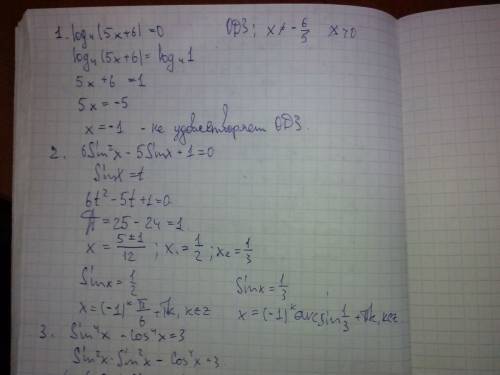 1. log₄(5x+6)=0   ОДЗ: x ≠ -6/5   x>0
log₄(5x+6)= log₄1
5x+6 =1
5x = -5
x = -1 - не удовлетворяет ОДЗ.
2. 6Sin²x - 5Sinx + 1=0
Sinx = t
6t² - 5t + 1=0
Д = 25 - 24 = 1
x = 5±1/12 ; x₁ = 1/2 ; x₂ = 1/3
Sinx = 1/2   Sinx = 1/3
x = (-1)ᵏ π/6 + πk, k∈z   x = (-1)ᵏ arcsin 1/3 + πk, k∈z
3. Sin⁴x - Cos⁴x = 3
Sin²x·Sin²x - Cos⁴x = 3